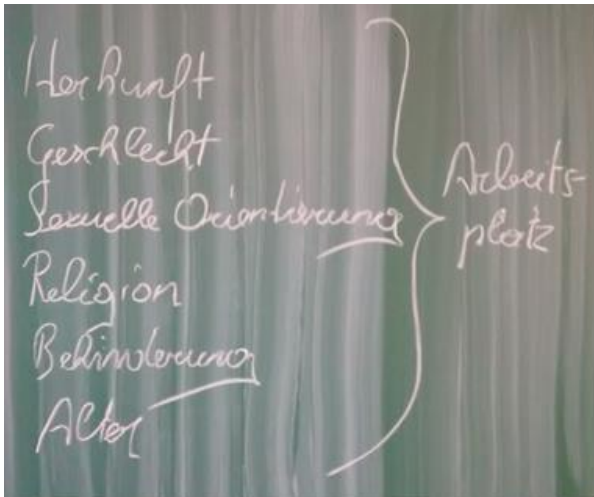 Herkunft
Geschlecht
Sexuelle Orientierung
Religion
Behinderung
Alter
Arbeits-
platz